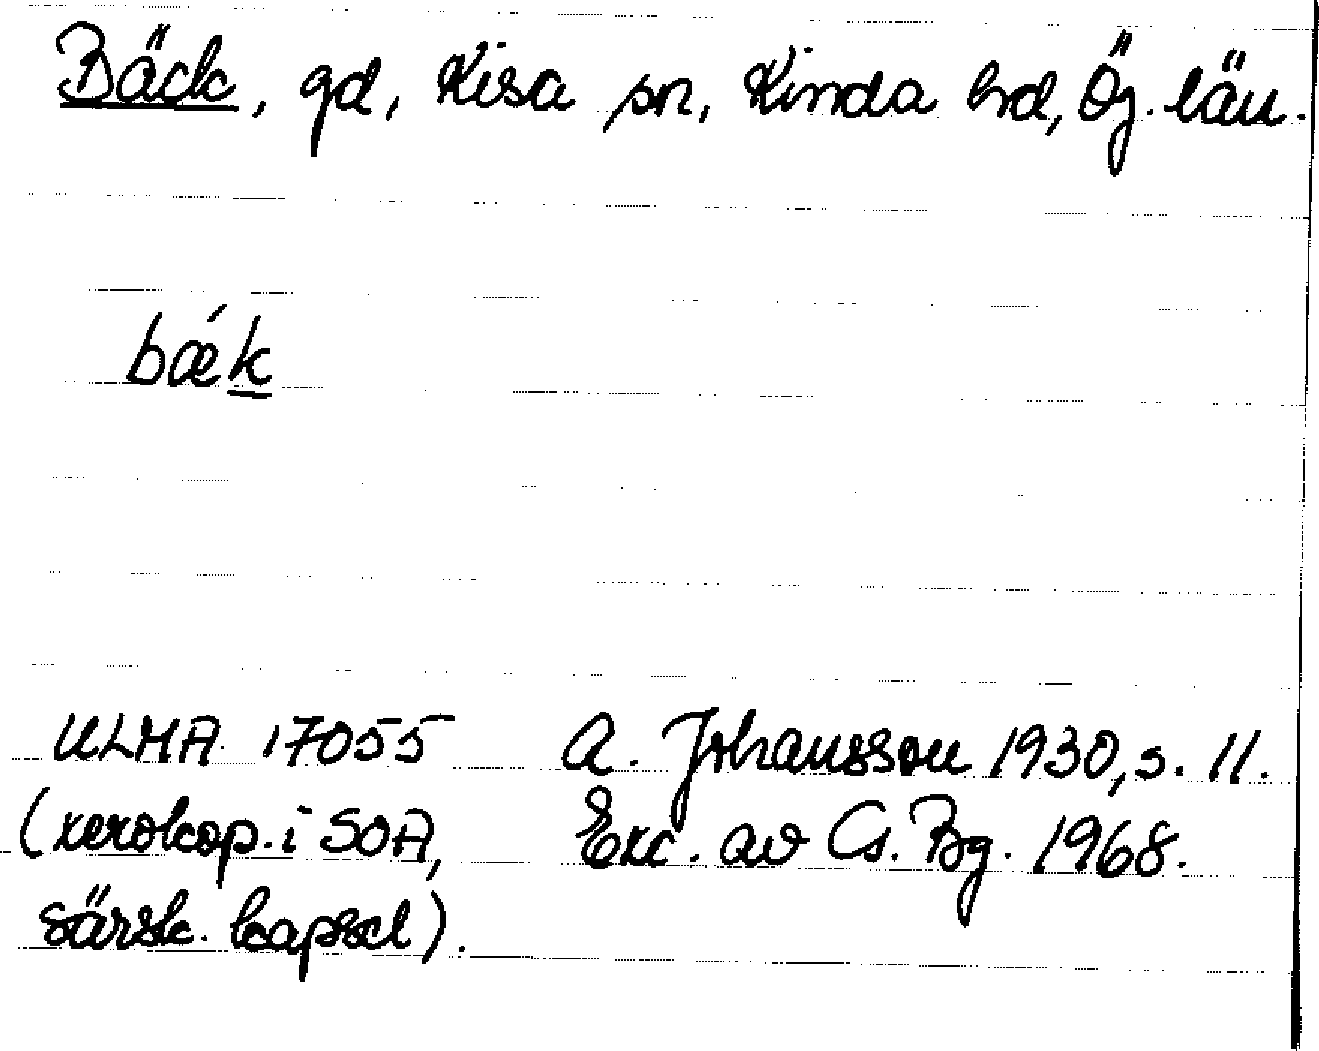 Bäck, gd, Kisa sn, Kinda hd, Ög. län.
bǽk
ULMA 17055 A. Johansson 1930, s. 11.
(xerokop. i SOA, Exc. av Cs. Bg. 1968.
särsk. kapsel).